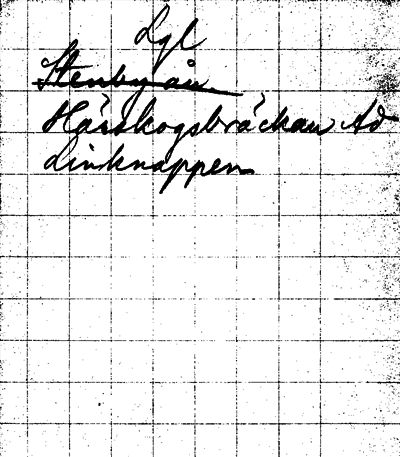 Lgl
Stenby ån
Hårskogsbräckan Ad
Linknappen